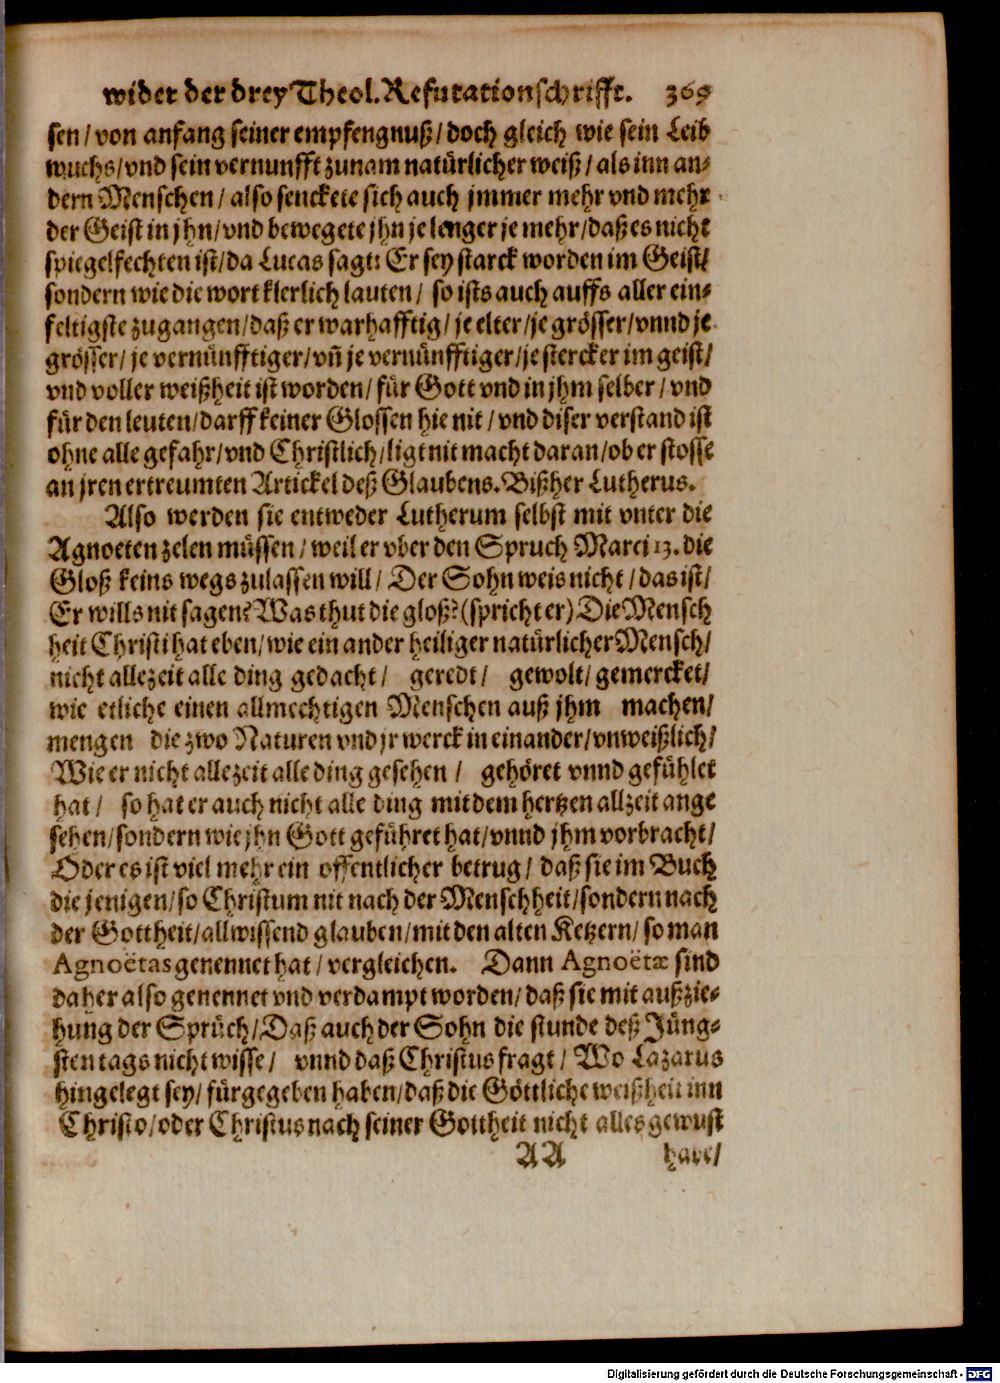 wider der drey Theol. Refutationschrifft. 369
sen/ von anfang seiner empfengnuß/ doch gleich wie sein Leib
wuchs/ vnd sein vernunfft zunam natürlicher weiß/ als inn an-
dern Menschen/ also senckete sich auch jmmer mehr vnd mehr
der Geist in jhn/ vnd bewegete jhn je lenger je mehr/ daß es nicht
spiegelfechten ist/ da Lucas sagt: Er sey starck worden im Geist/
sondern wie die wort klerlich lauten/ so ists auch auffs aller ein-
feltigste zugangen/ daß er warhafftig/ je elter/ je grösser/ vnnd je
grösser/ je vernünfftiger/ vñ je vernünfftiger/ je stercker im geist/
vnd voller weißheit ist worden/ für Gott vnd in jhm selber/ vnd
für den leuten/ darff keiner Glossen hie nit/ vnd diser verstand ist
ohne alle gefahr/ vnd Christlich/ ligt nit macht daran/ ob er stosse
an jren ertreumten Artickel deß Glaubens. Bißher Lutherus.
Also werden sie entweder Lutherum selbst mit vnter die
Agnoeten zelen müssen/ weil er vber den Spruch Marci 13. die
Gloß keins wegs zulassen will/ Der Sohn weis nicht/ das ist/
Er wills nit sagen? Was thut die gloß? (spricht er) Die Mensch
heit Christi hat eben/ wie ein ander heiliger natürlicher Mensch/
nicht allezeit alle ding gedacht/ geredt/ gewolt/ gemercket/
wie etliche einen allmechtigen Menschen auß jhm machen/
mengen die zwo Naturen vnd jr werck in einander/ vnweißlich/
Wie er nicht allezeit alle ding gesehen/ gehöret vnnd gefühlet
hat/ so hat er auch nicht alle ding mit dem hertzen allzeit ange
sehen/ sondern wie jhn Gott geführet hat/ vnnd jhm vorbracht/
Oder es ist viel mehr ein offentlicher betrug/ daß sie im Buch
die jenigen/ so Christum nit nach der Menschheit/ sondern nach
der Gottheit/ allwissend glauben/ mit den alten Ketzern/ so man
Agnoëtas genennet hat/ vergleichen. Dann Agnoëtæ sind
daher also genennet vnd verdampt worden/ daß sie mit außzie-
hung der Sprüch/ Daß auch der Sohn die stunde deß Jüng-
sten tags nicht wisse/ vnnd daß Christus fragt/ Wo Lazarus
hingelegt sey/ fürgegeben haben/ daß die Göttliche weißheit inn
Christo/ oder Christus nach seiner Gottheit nicht alles gewust
AA habe/
Digitalisierung gefördert durch die Deutsche Forschungsgemeinschaft - DFG